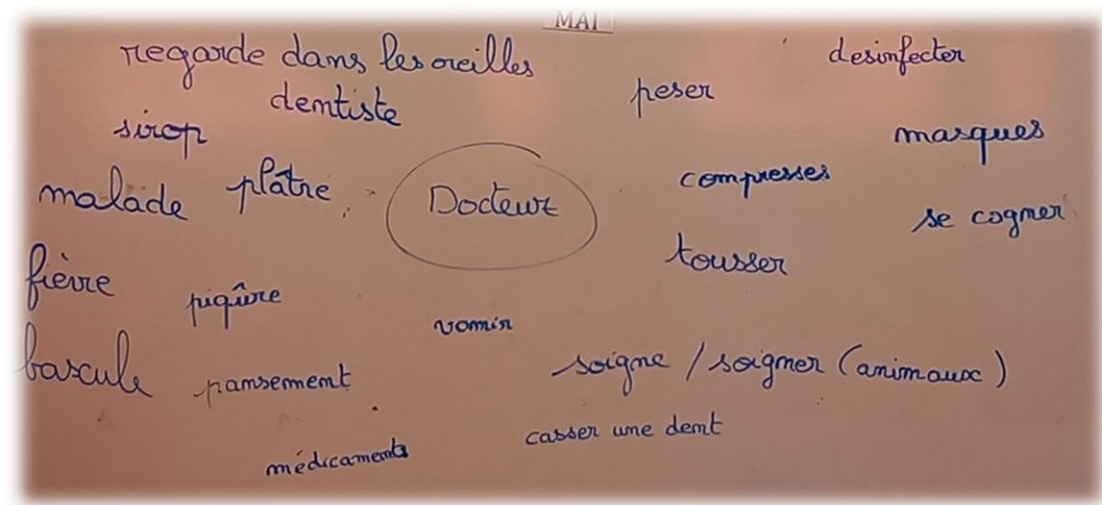 MAI
regarde dans les oreilles
desinfecter
dentiste
peser
sirop
masques
malade
plâtre
Docteur
compresses
se cogner
tousser
fièvre
piqûre
vomir
bascule
pansement
soigne / soigner (animaux)
casser une dent
médicaments